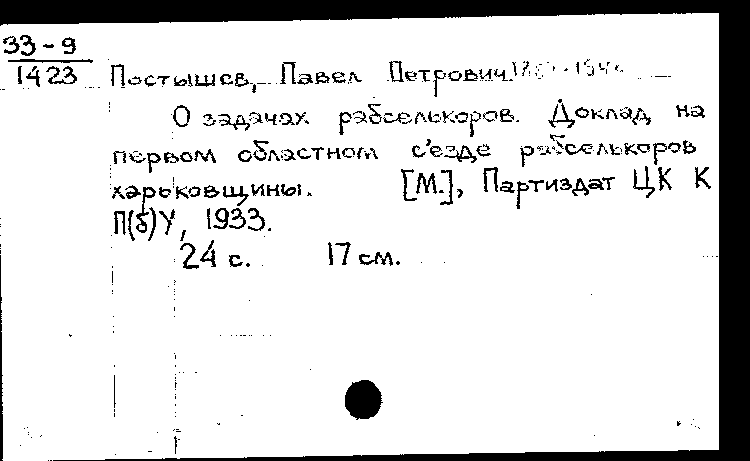 33-9
1423
Постышев, Павел Петрович.
О задачах рабселькоров. Доклад на
первом областном с'езде рабселькоров
харьковщины. [М.], Партиздат ЦК К
П(б)У, 1933.
24 с. 17 см.